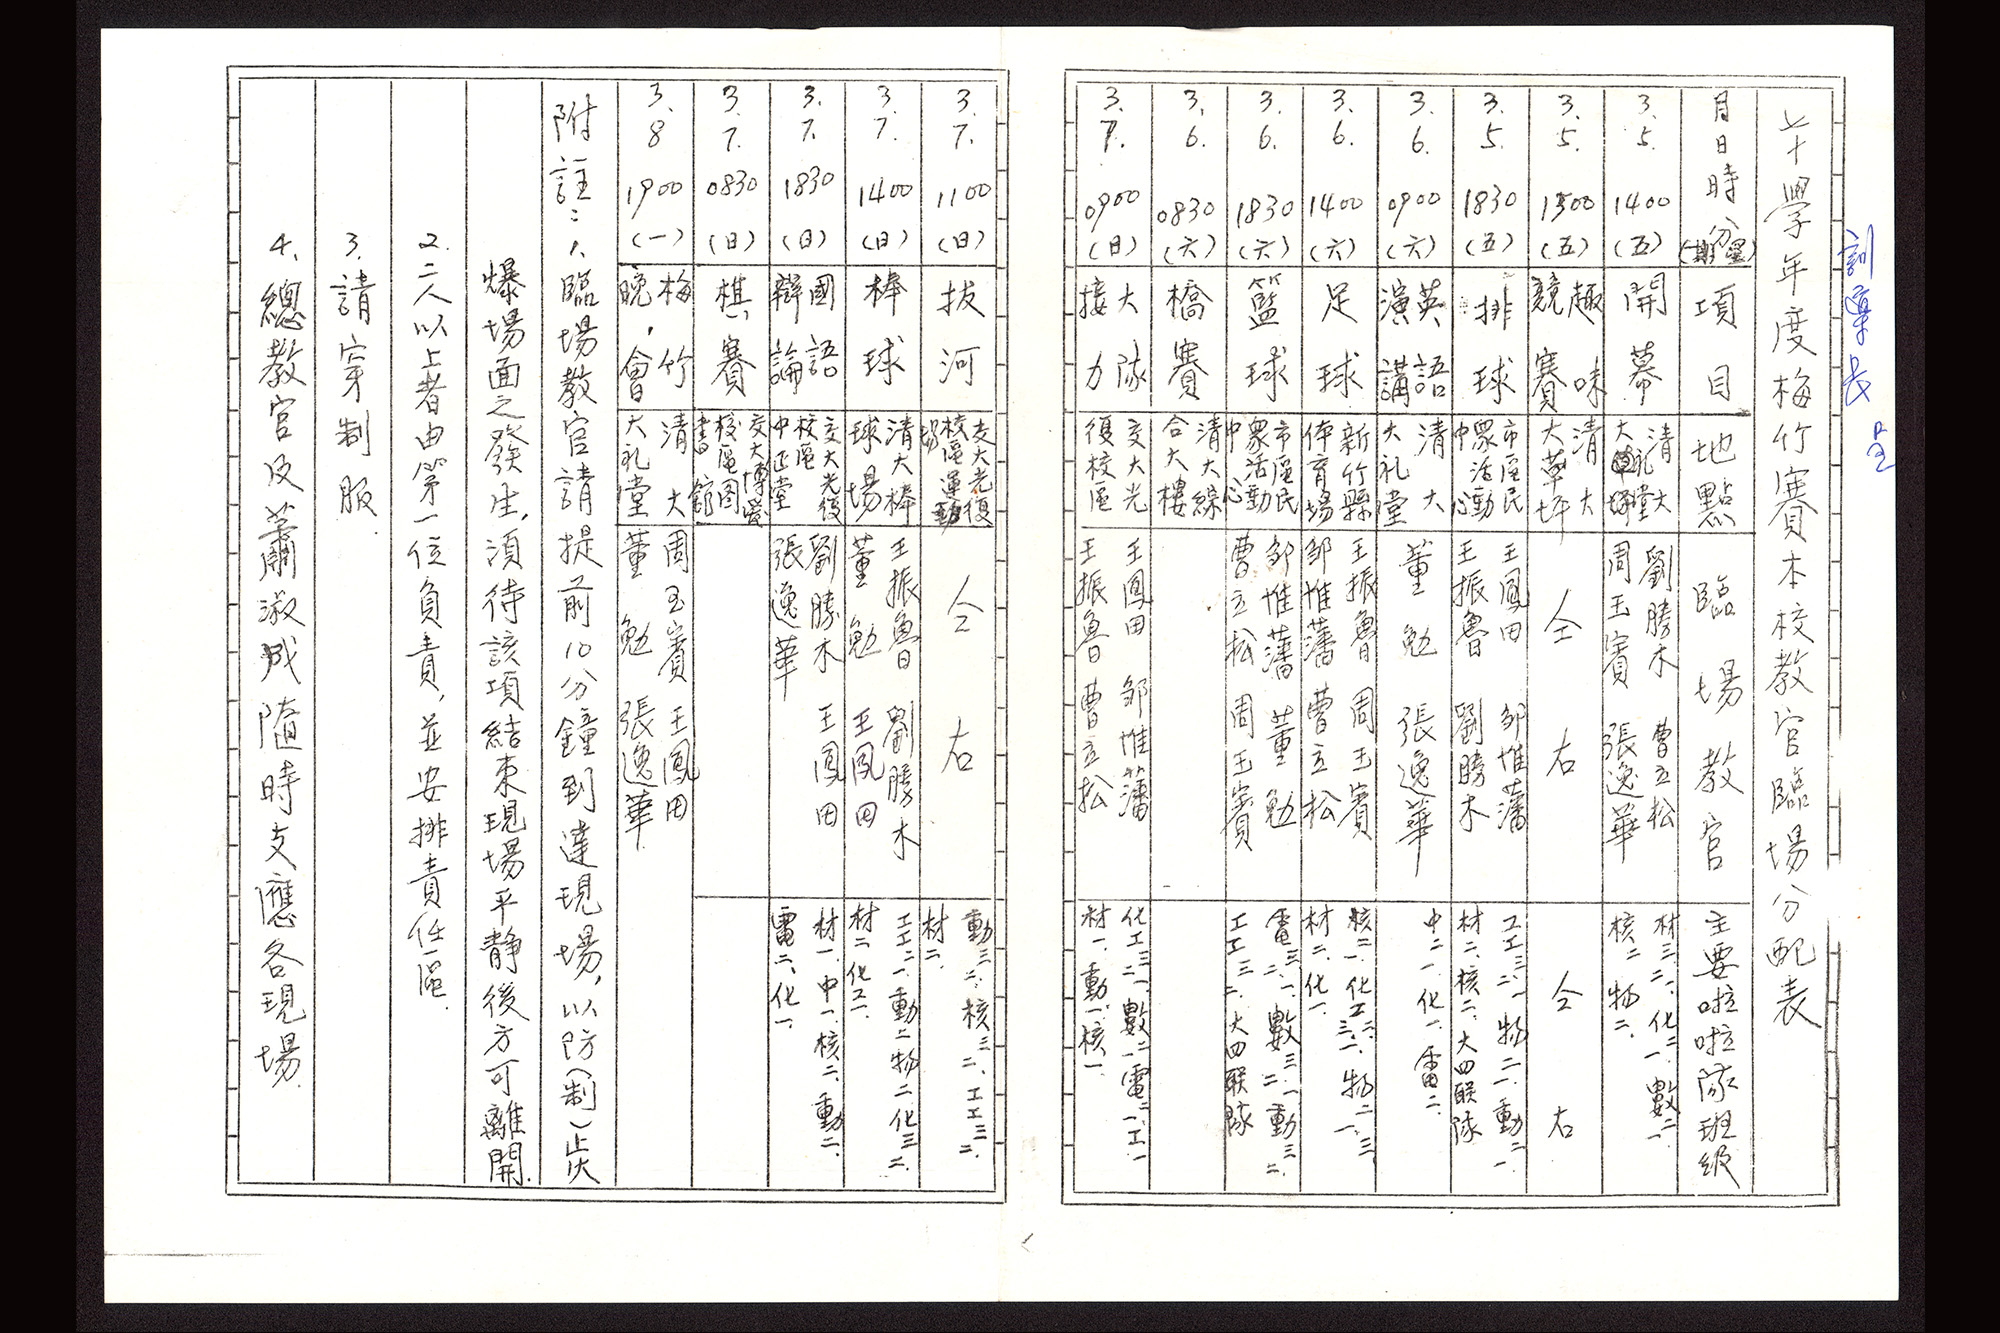 訓導長
七十學年度梅竹賽本校教官臨場分配表
月日時分(星期)
項目
地點
臨場教官
主要啦啦隊班級
3.5. 1400(五)
開幕
清大大礼堂
劉勝木 曹立松
周玉賓 張逸華
材三二、化二一、數二一
核二 物二、
3.5. 1300(五)
趣味
競賽
清大
大草坪
仝右
仝右
3.5. 1830(五)
排球
市區民
眾活動
中心
王鳳田 邹惟藩
王振魯 劉勝木
工工三二、物二一、動二一
材二、核二、大四联隊
3.6. 0900(六)
英語
演講
清大
大礼堂
董勉 張逸華
中二一、化一、電二、
3.6. 1400(六)
足球
新竹縣
体育場
王振魯 周玉賓
邹惟藩 曹立松
核二一、化工三二一、物二一
材二、化一、
3.6. 1830(六)
籃球
市區民
眾活動
中心
邹惟藩 董勉
曹立松 周玉賓
電三二一、數三二一動三二
工工三二、大四联隊
3.6. 0830(六)
橋賽
清大綜
合大樓
3.7. 0900(日)
大隊
接力
交大光
復校區
王鳳田 邹惟藩
王振魯 曹立松
化工三二一、數二一電二一、工一
材一、動一、核一
3.7. 1100(日)
拔河
交大光復
校區運動
場
仝右
動三二、核三二、工工三二
材二、
3.7. 1400(日)
棒球
清大棒
球場
王振魯 劉勝木
董勉 王鳳田
工工二一、動二物二化三二
材二化工二
3.7. 1830(日)
國語
辯論
交大光復
校區
中正堂
劉勝木 王鳳田
張逸華
材一、中一、核二、動二、
電二、化一、
3.7. 0830(日)
棋賽
交大博愛
校區圖
書館
3.8 1900(一)
梅竹
晚會
清大
大礼堂
周玉賓 王鳳田
董勉 張逸華
附註：1.臨場教官請提前10分鐘到達現場，以防(制)止火
爆場面之發生，須待該項結束現場平靜後方可離開.
2.二人以上者由第一位負責，並安排責任區.
3.請穿制服.
4.總教官及蕭淑戍隨時支應各現場.